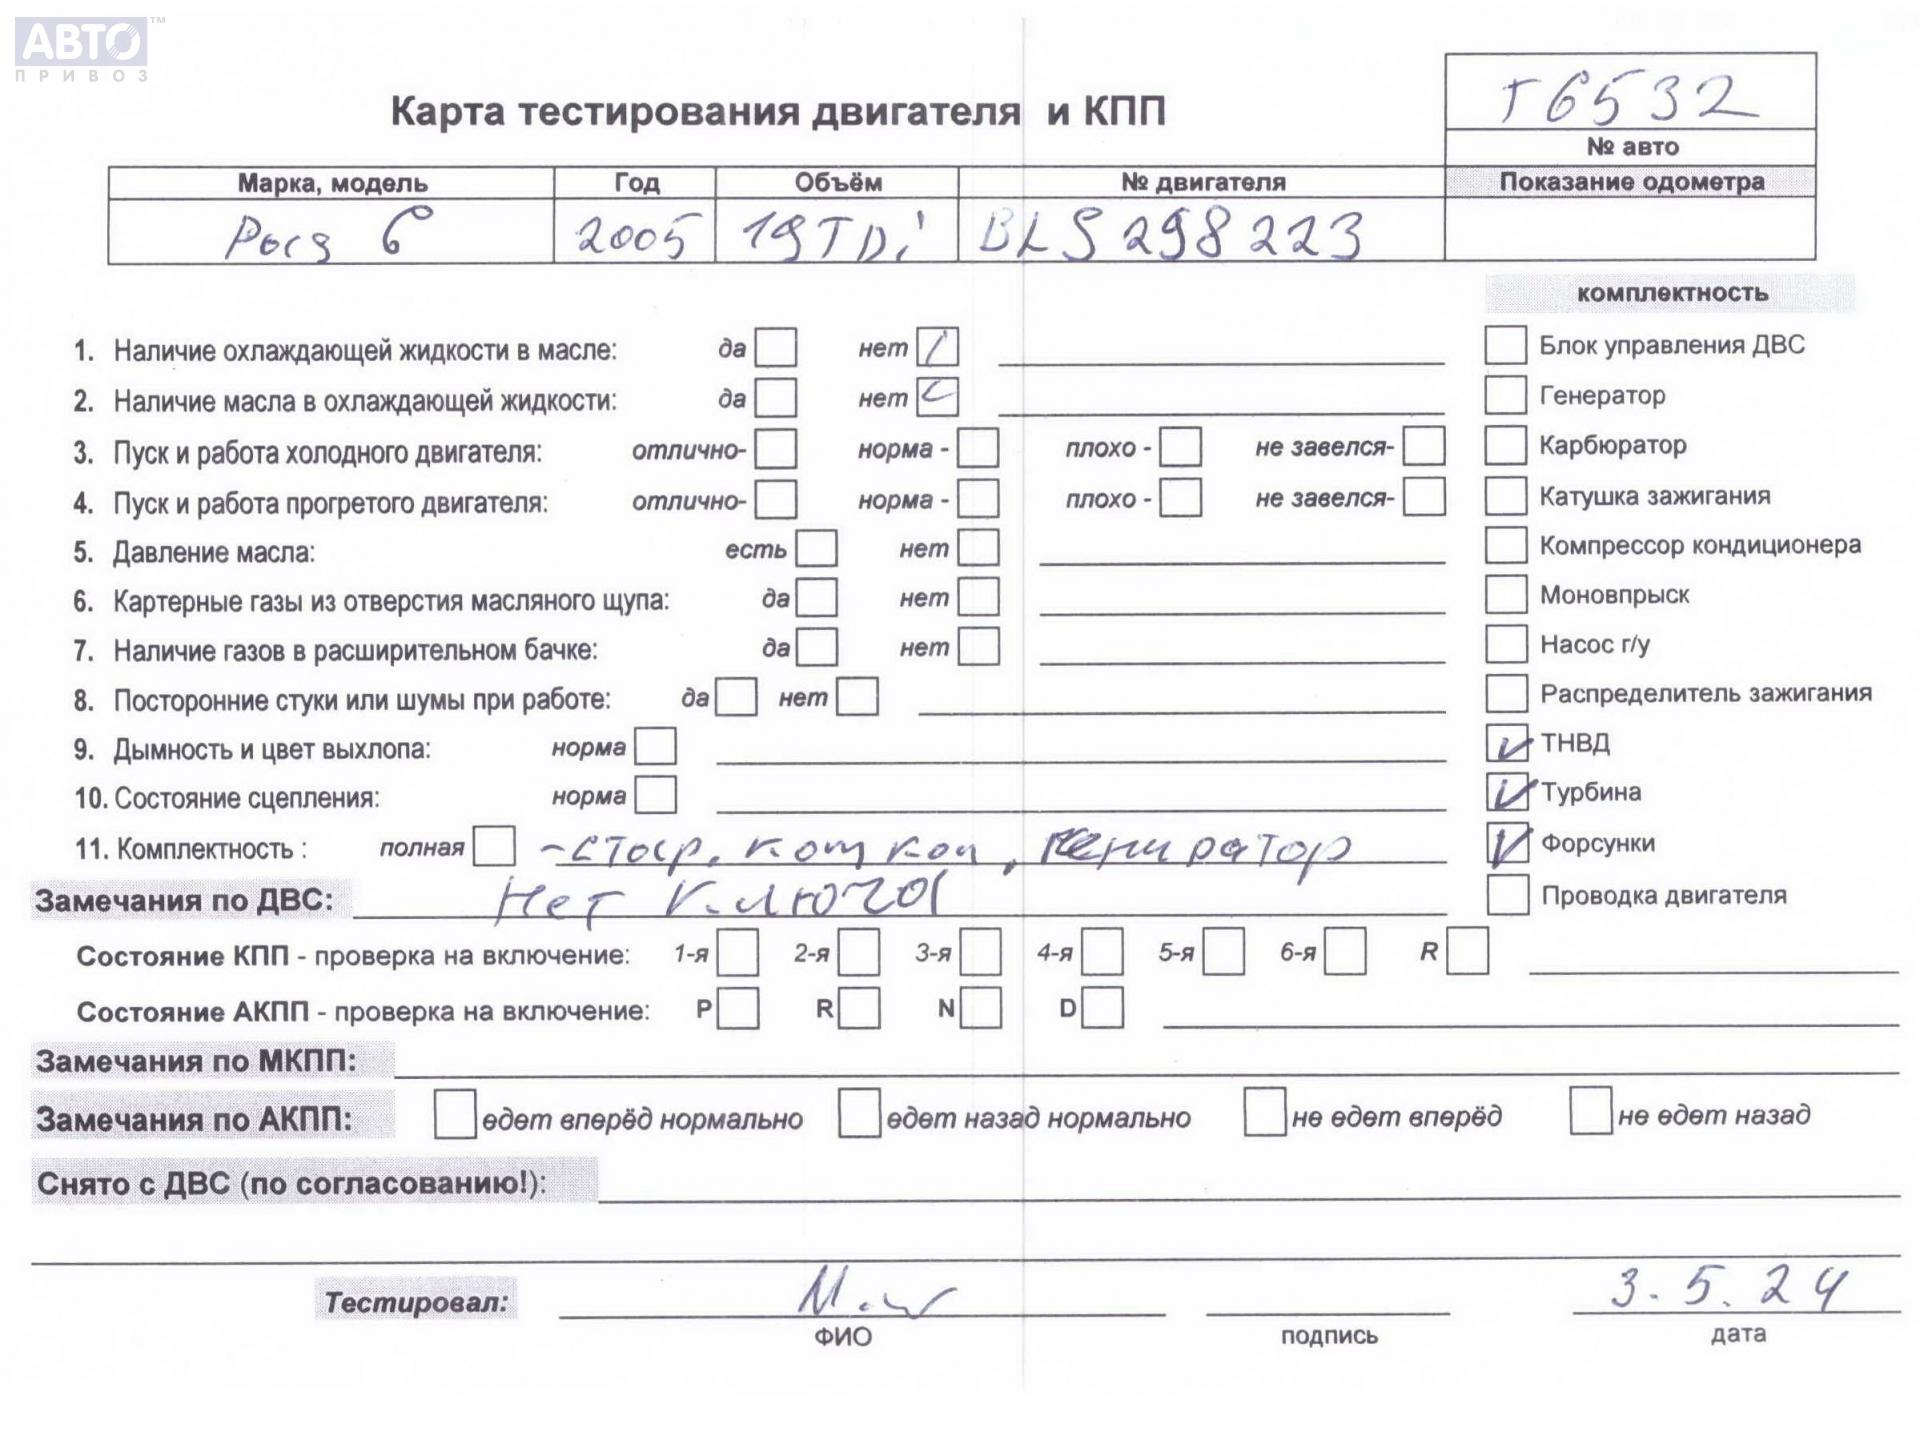 АВТО™
ПРИВОЗ
Т6532
Карта тестирования двигателя и КПП
№ авто
Марка, модель Год Объём № двигателя Показание одометра
6 2005 19TDi BLS298223
комплектность
1. Наличие охлаждающей жидкости в масле: да нет Блок управления ДВС
2. Наличие масла в охлаждающей жидкости: да нет Генератор
3. Пуск и работа холодного двигателя: отлично- норма - плохо - не завелся- Карбюратор
4. Пуск и работа прогретого двигателя: отлично- норма - плохо - не завелся- Катушка зажигания
5. Давление масла: есть нет Компрессор кондиционера
6. Картерные газы из отверстия масляного щупа: да нет Моновпрыск
7. Наличие газов в расширительном бачке: да нет Насос г/у
8. Посторонние стуки или шумы при работе: да нет Распределитель зажигания
9. Дымность и цвет выхлопа: норма ТНВД
10. Состояние сцепления: норма Турбина
11. Комплектность : полная Форсунки
Замечания по ДВС: Нет ключа Проводка двигателя
Состояние КПП - проверка на включение: 1-я 2-я 3-я 4-я 5-я 6-я R
Состояние АКПП - проверка на включение: P R N D
Замечания по МКПП:
Замечания по АКПП: едет вперёд нормально едет назад нормально не едет вперёд не едет назад
Снято с ДВС (по согласованию!):
Тестировал: 3.5.24
ФИО подпись дата